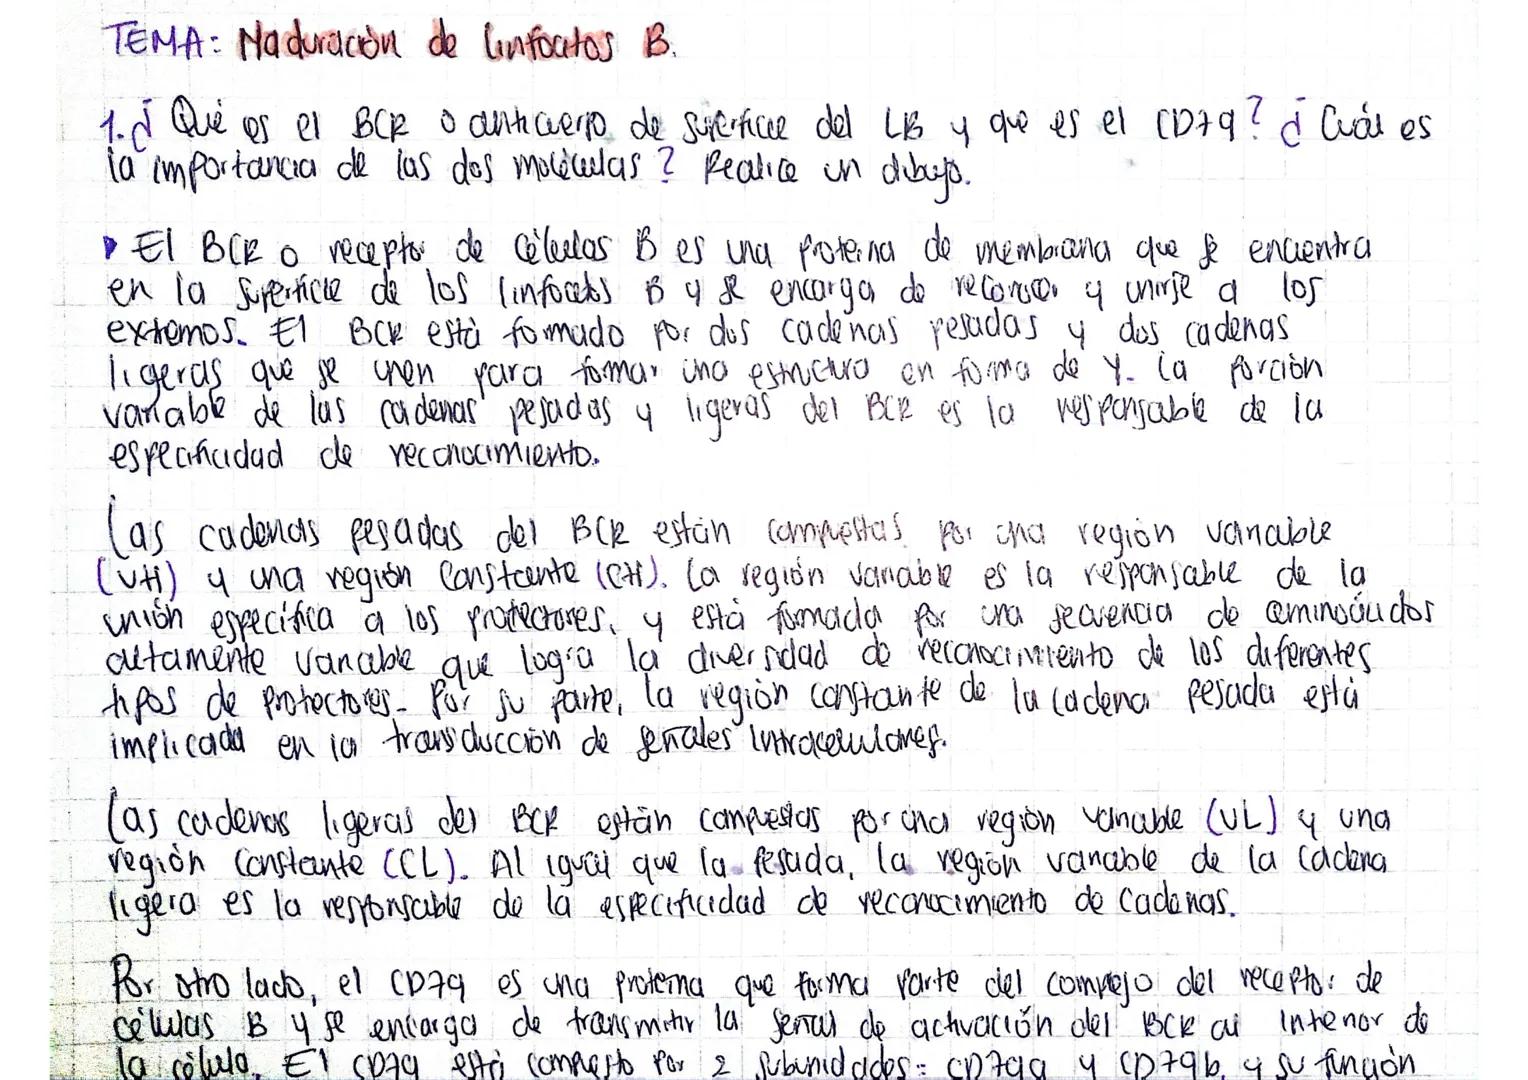 TEMA: Maduración de linfocitos B.
1. ¿Qué es el BCR o anticuerpo de superficie del LB y que es el CD79? ¿Cuál es
la importancia de las dos moléculas? Realice un dibujo.
El BCR o receptor de células B es una proteína de membrana que se encuentra
en la superficie de los linfocitos B y se encarga de reconocer y unirse a los
extremos. El BCR está formado por dos cadenas pesadas y dos cadenas
ligeras que se unen para formar una estructura en forma de Y. La porción
variable de las cadenas pesadas y ligeras del BCR es la responsable de la
especificidad de reconocimiento.
Las cadenas pesadas del BCR están compuestas por una región variable
(VH) y una región constante (CH). La región variable es la responsable de la
unión específica a los protectores, y está formada por una secuencia de aminoácidos
altamente variable que logra la diversidad de reconocimiento de los diferentes
tipos de protectores. Por su parte, la región constante de la cadena pesada está
implicada en la transducción de señales intracelulares.
Las cadenas ligeras del BCR están compuestas por una región variable (VL) y una
región constante (CL). Al igual que la pesada, la región variable de la cadena
ligera es la responsable de la especificidad de reconocimiento de cadenas.
Por otro lado, el CD79 es una proteína que forma parte del complejo del receptor de
células B y se encarga de transmitir la señal de activación del BCR al interior de
la célula. El CD79 está compuesto por 2 subunidades: CD79a y CD79b, y su función